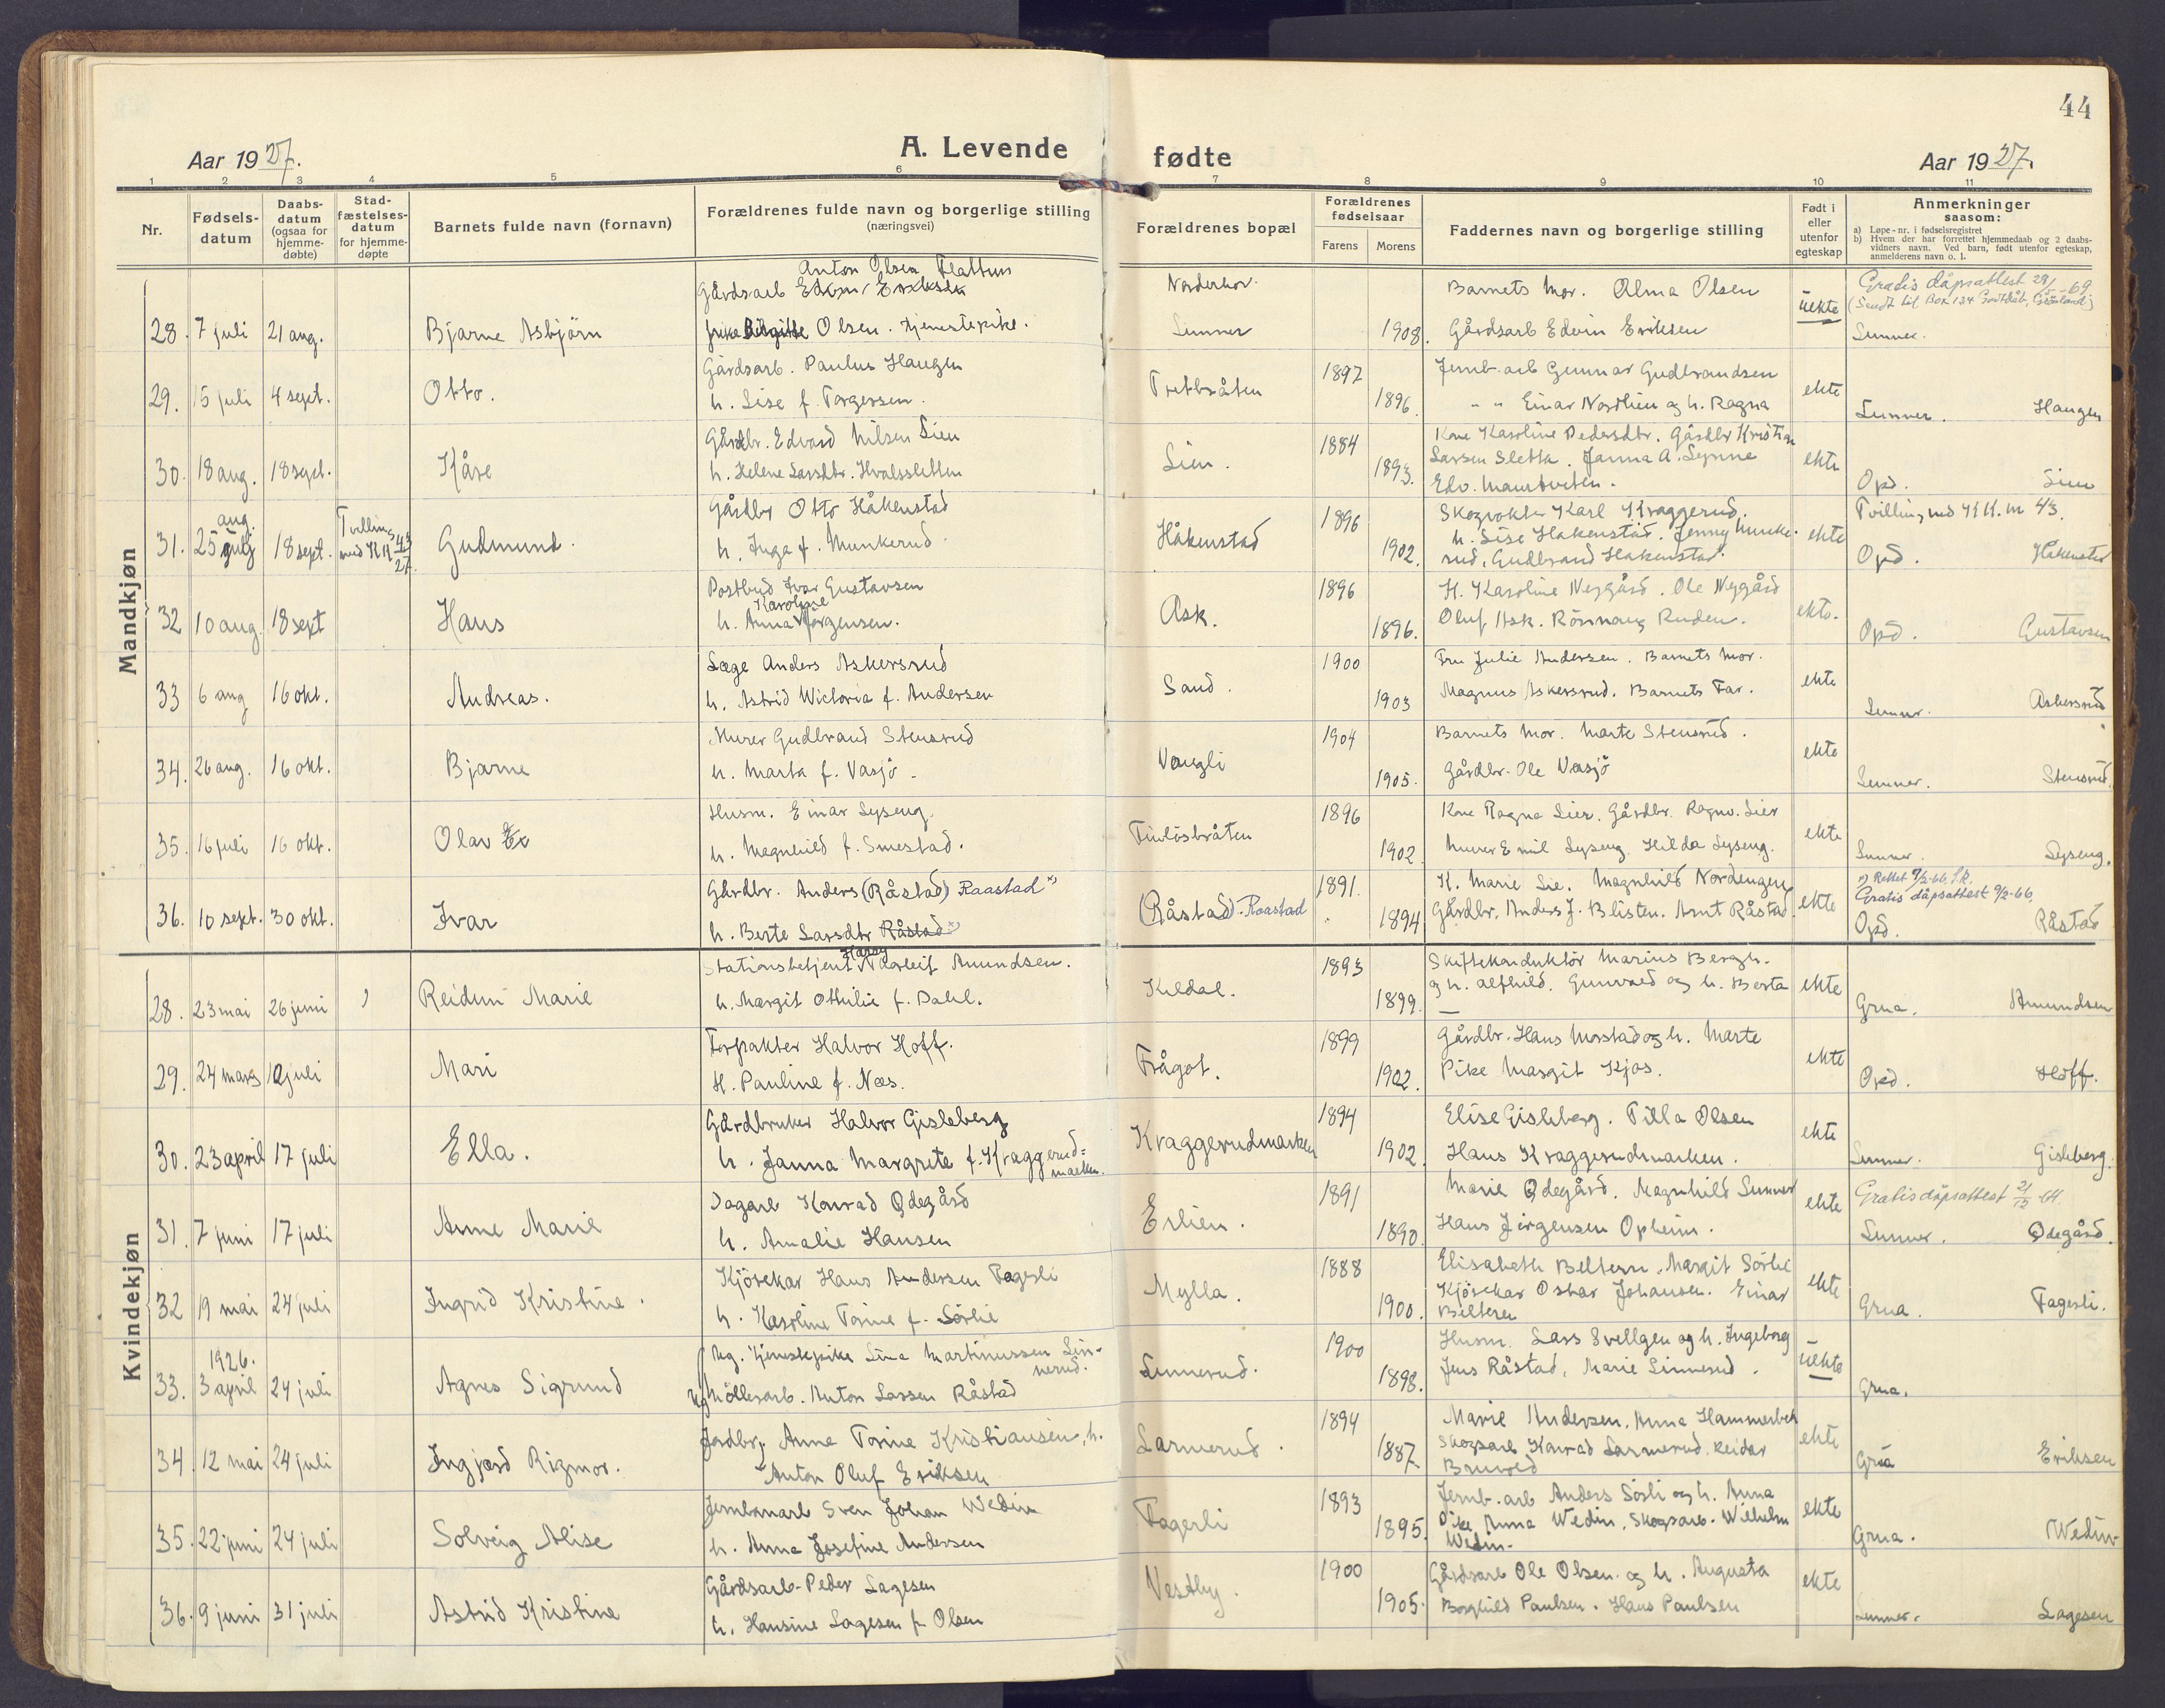 44
Aar 1927.
A. Levende
fødte
Aar 1927.
1 2 3 4 5 6 7 8 9 10 11
Nr.
Fødsels-
datum
Daabs-
datum
(ogsaa for
hjemme-
døbte)
Stad-
fæstelses-
datum
for hjemme-
døpte
Barnets fulde navn (fornavn)
Forældrenes fulde navn og borgerlige stilling
(næringsvei)
Forældrenes bopæl
Forældrenes
fødselsaar
Farens Morens
Faddernes navn og borgerlige stilling
Født i
eller
utenfor
egteskap
Anmerkninger
saasom:
a) Løpe-nr. i fødselsregistret
b) Hvem der har forrettet hjemmedaab og 2 daabs-
vidners navn. Ved barn, født utenfor egteskap,
anmelderens navn o. l.
Mandkjøn
Anton Olsen
Gårdsarb
Norderhov.
Barnets mor. Alma Olsen
uekte
Gratis dåpsattest
28. 7 juli 21 aug. Bjarne Asbjörn
Olsen. tjenestepike.
Lunner 1908. Gårdsarb Edvin Eriksen
Lunner.
Gårdsarb. Paulus Haugen
1897 Jernb. arb Gunnar Gudbrandsen
29. 15 juli 4 sept. Otto.
h. Lise f. Torgersen.
Tretbråten 1896. " " Einar Nordlien og h. Ragna
ekte Lunner. Haugen
Gårdbr. Edvard Nilsen Lien
1884 Kone Karoline Pedersdtr. Gårdbr Kristian
30. 18 aug. 18 sept. Kåre
h. Helene Larsdtr. Hvalssletten
Lien. 1893. Larsen Sletta. Janna A. Lynne
Edv.
ekte Opd. Lien
Gårdbr Otto Håkenstad
1896 Skogvokter Karl Kraggerud.
31. 25 juli aug. 18 sept. Tvilling med KK 43/27. Gudmund.
h. Inga f. Munkerud
Håkenstad 1902. h. Lise Hakenstad. Jenny Munke-
rud, Gudbrand Hakenstad.
ekte Tvilling med KK. nr 43.
Opd. Håkenstad
Postbud Ivar Gustavsen
1896 H. Karoline Nygård. Ole Nygård
32 10 aug. 18 sept Hans
h. Anna Karoline Jörgensen.
Ask. 1896. Oluf Ask. Rönnaug Ruden.
ekte. Opd. Gustavsen
Læge Anders Askersrud
1900 Fru Julie Andersen. Barnets mor.
33 6 aug 16 okt. Andreas.
h. Astrid Wictoria f. Andersen
Sand. 1903 Magnus Askersrud. Barnets Far.
ekte Lunner. Askersrud
Murer Gudbrand Stensrud
1904 Barnets mor. Marte Stensrud.
34. 26 aug. 16 okt. Bjarne
h. Marta f. Vasjö.
Vangli 1905. Gårdbr. Ole Vasjö
ekte Lunner. Stensrud.
Husm. Einar Lyseng.
1896 Kone Ragna Lier. Gårdbr. Ragnv. Lier
35. 16 juli 16 okt. Olav
h. Magnhild f. Smestad.
1902 Murer Emil Lyseng. Hilda Lyseng.
ekte Lunner. Lyseng.
Gårdbr. Anders (Råstad) Raastad x)
1891. K. Marie Lie. Magnhild Nordengen
36. 10 sept. 30 okt. Ivar
h. Berte Larsdtr Råstad x)
(Råstad). Raastad 1894 Gårdbr. Anders J. Blisten. Arnt Råstad.
ekte x) Rettet 9/2-66.
Gratis dåpsattest 9/2-66.
Opd. Råstad
Kvindekjøn
Stationsbetjent Amundsen.
1893 Skiftekonduktör Marius Bergh.
28. 23 mai 26 juni Reidun Marie
h. Margit Othilie f. Dahl.
Kildal. 1899. og h. Alfhild. Gunvald og h. Berta
ekte Grua. Amundsen
Forpakter Halvor Hoff.
1899 Gårdbr. Hans Morstad og h. Marte
29. 24 mars 10 juli Mari
H. Pauline f. Næs.
Frågot. 1902. Pike Margit Kjos.
ekte Opd. Hoff.
Gårdbruker Halvor Gisleberg
1894 Elise Gisleberg. Tilla Olsen
30. 23 april 17 juli Ella.
h. Janna Margrete f. Kraggerud=
marken.
Kraggerudmarken 1902. Hans Kraggerudmarken.
ekte Lunner. Gisleberg.
Dagarb Konrad Ødegård
1891 Marie Ødegård. Magnhild Lunner
31. 7 juni 17 juli Anne Marie
h. Amalie Hansen
Erlien. 1890. Hans Jörgensen Opheim.
ekte Gratis dåpsattest 21/12 -64.
Lunner. Ødegård.
Kjörekar Hans Andersen Fagerli
1888 Elisabeth Beltern. Margit Sörlie
32 19 mai 24 juli Ingrid Kristine.
h. Karoline Torine f. Sörlie
Mylla. 1900. Kjörekar Oskar Johansen. Einar
Beltern
ekte Grua. Fagerli.
Ug. tjenestepike Lina Martinussen Lin-
nerud.
1900 Husm. Lars Evellgen og h. Ingeborg
1926.
33. 3 april 24 juli Agnes Sigrund
Ug Möllerarb. Anton Larsen Råstad
Linnerud. 1898. Jens Råstad, Marie Linnerud.
uekte Grua.
Jordbr. Anne Torine Kristiansen, h.
1894 Marie Andersen. Anna Hammerbek
34. 12 mai 24 juli Ingjerd Rigmor.
Anton Oluf Eriksen
Larmerud. 1887 Skogsarb Konrad Larmerud. Reidar
Bruvold
ekte Grua Eriksen
Jernbanarb Sven Johan Wedin
1893 Jernb. arb Anders Sörli og h. Anna
35. 22 juni 24 juli Solveig Alise
h. Anna Josefine Andersen
Fagerli 1895. Pike Anna Wedin, Skogsarb. Wilhelm
Wedin.
ekte Grua. Wedin
Gårdsarb. Peder Lagesen
1900 Gårdsarb Ole Olsen og h. Augusta
36. 9 juni 31 juli Astrid Kristine
h. Hansine Lagesen f. Olsen
Vestby. 1905. Borghild Paulsen. Hans Paulsen
ekte Lunner. Lagesen